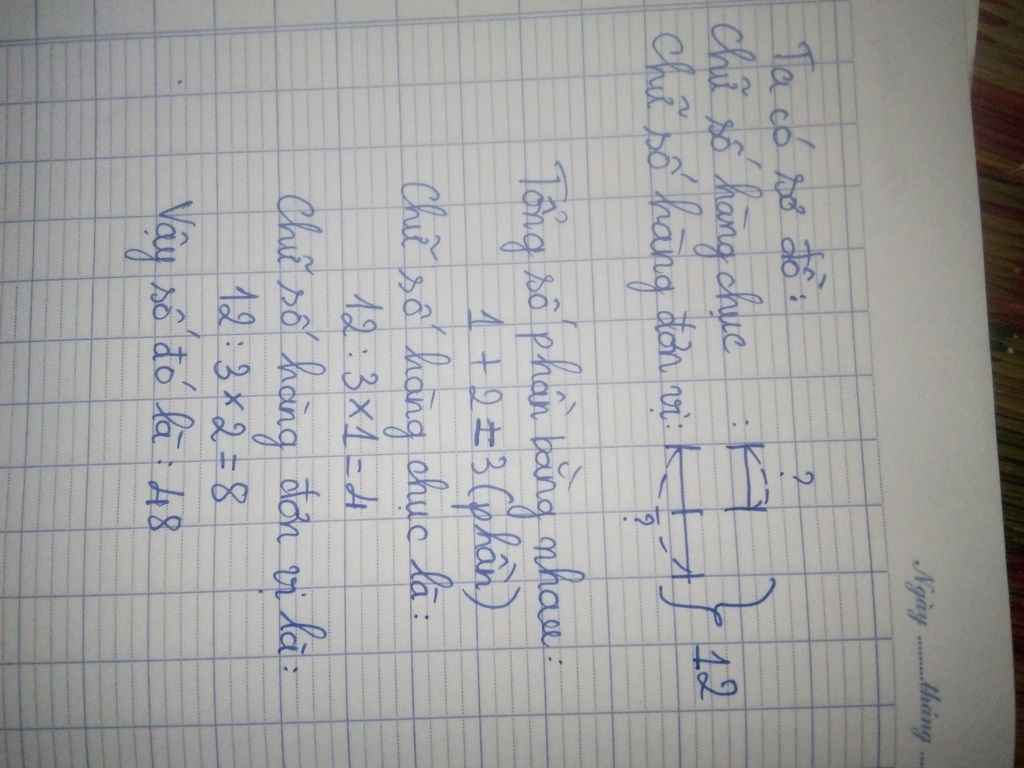 Ngày ........tháng ..
Ta có sơ đồ:
?
Chữ số hàng chục :
12
Chữ số hàng đơn vị:
?
Tổng số phần bằng nhau:
1 + 2 = 3 (phần)
Chữ số hàng chục là:
12 : 3 x 1 = 4
Chữ số hàng đơn vị là:
12 : 3 x 2 = 8
Vậy số đó là: 48